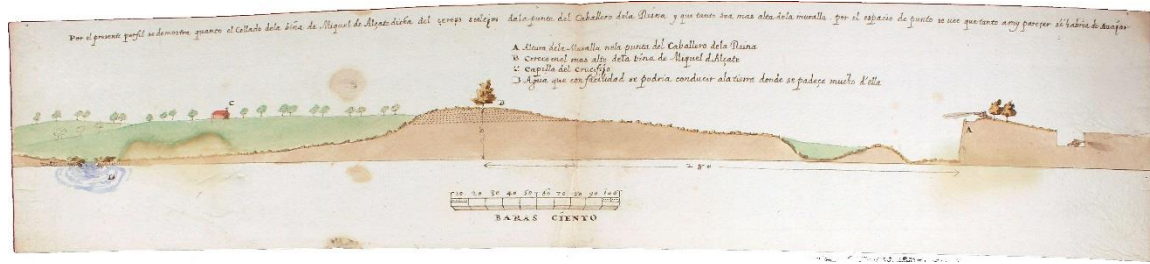 Por el presente perfil se demostra quanto el Collado dela biña de Miguel de Alçate dicha del çereço stalejos dela punta del Caballero dela Reina y que tanto sea mas alta dela muralla por el espacio de punto se vee que tanto a my pareçer se habria de auajar
A Altura dela Muralla nela punta del Caballero dela Reina
B Cereço enel mas alto dela biña de Miguel d Alçate
C Capilla del Crucifijo
D Agua que con facilidad se podria conducir ala tierra donde se padeçe mucho d'ella
C
B
A
D
280
10 20 30 40 50 60 70 80 90 100
BARAS CIENTO